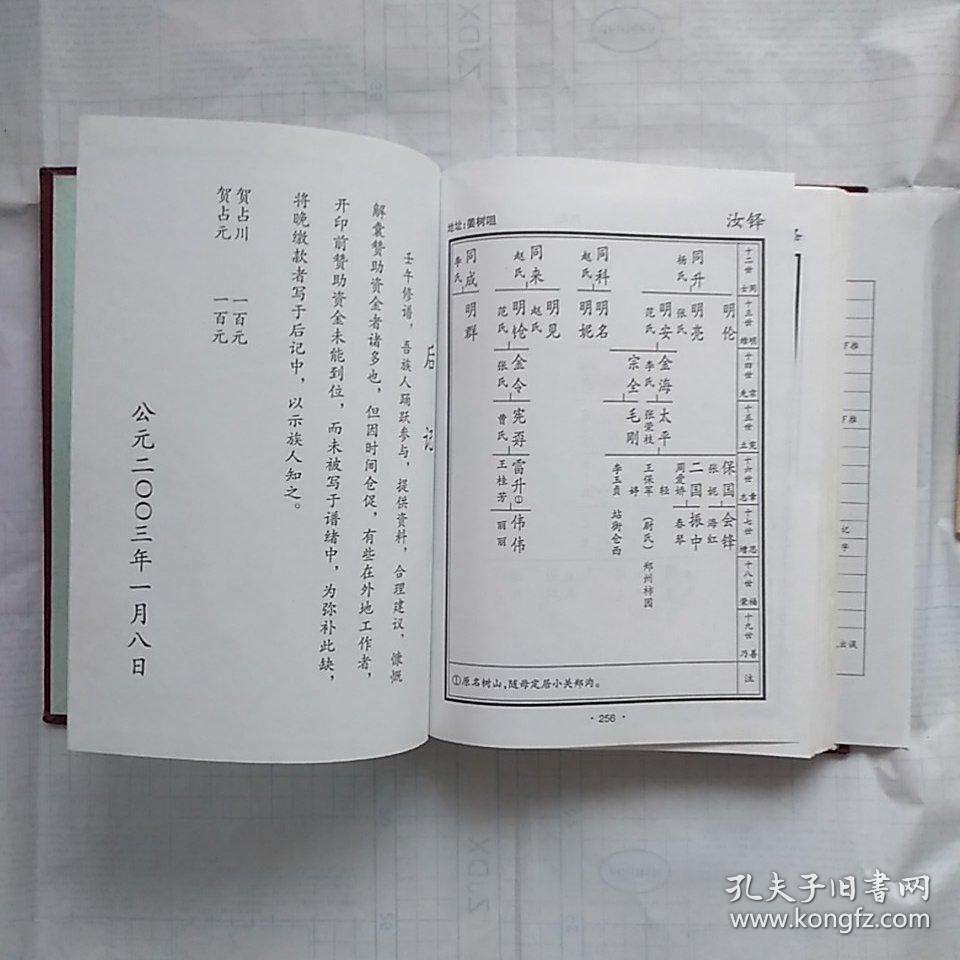 汝铎
地址:姜树咀
十二世
十三世
十四世
十五世
十六世
十七世
十八世
十九世
注
同升
杨氏
同科
赵氏
同来
赵氏
同成
李氏
明伦
明亮
张氏
明安
范氏
明名
明妮
明见
赵氏
明铨
范氏
明群
金海
李氏
宗全
金令
张氏
太平
张荣枝
毛刚
宪孬
曹氏
保国
张妮
二国
周爱娇
轻
王保军
婷
李玉贞
雷升①
王桂芳
会锋
海红
振中
春琴
(尉氏)
郑州柿园
站街仓西
伟伟
丽丽
①原名树山,随母定居小关郑沟。
·256·
后记
壬午修谱,吾族人踊跃参与,提供资料,合理建议,慷慨
解囊赞助资金者诸多也,但因时间仓促,有些在外地工作者,
开印前赞助资金未能到位,而未被写于谱绪中,为弥补此缺,
将晚缴款者写于后记中,以示族人知之。
贺占川 一百元
贺占元 一百元
公元二〇〇三年一月八日
孔夫子旧书网
www.kongfz.com